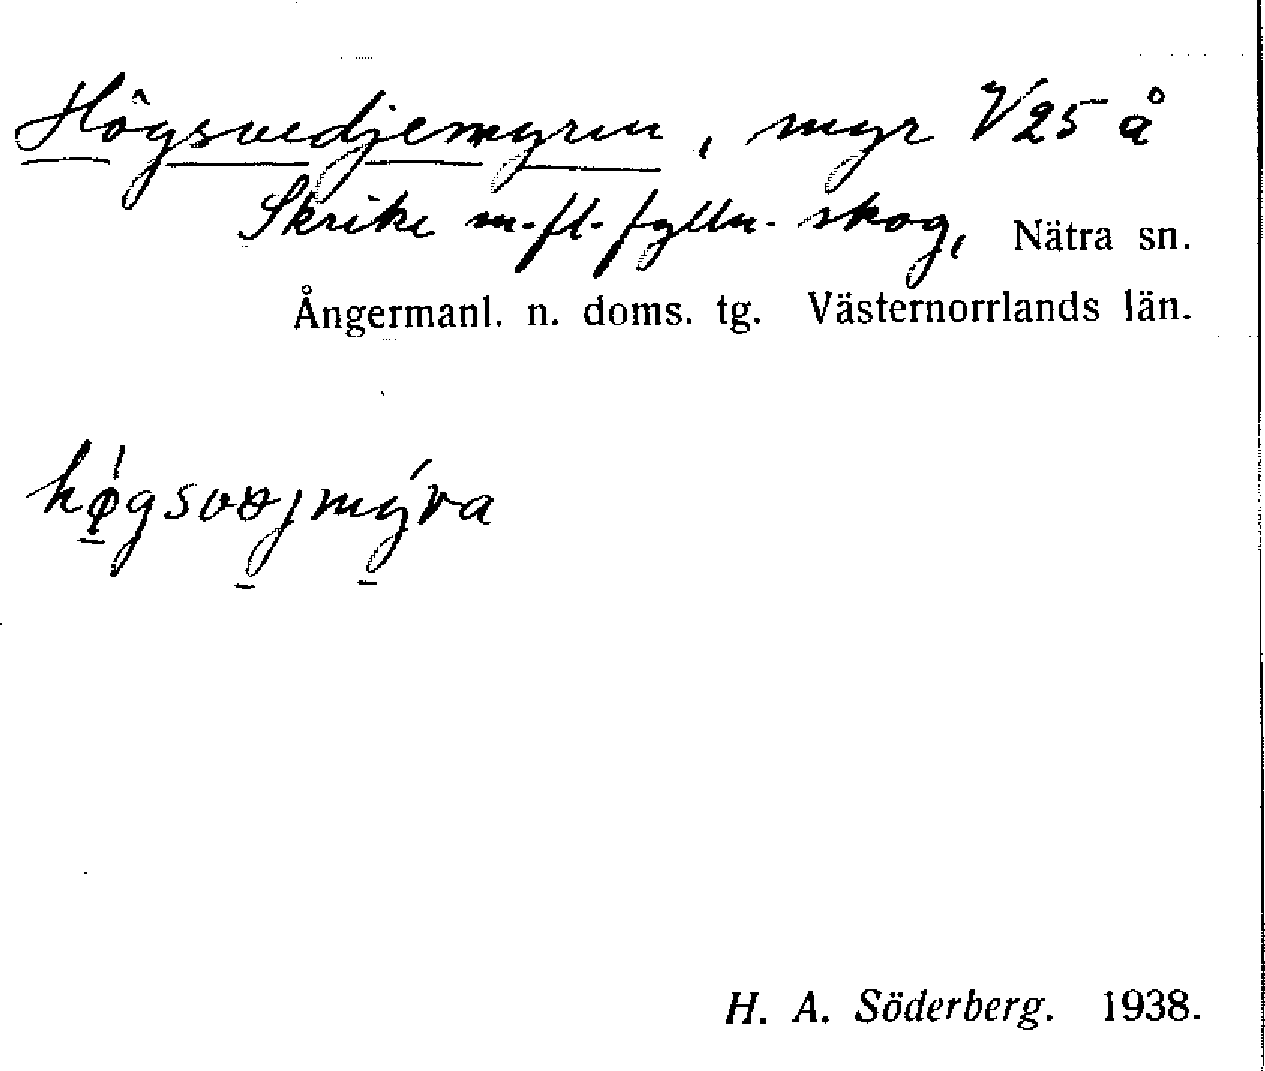 Högsvedjemyren, myr V25 å
Skrike m.fl. fylln. skog, Nätra sn.
Ångermanl. n. doms. tg. Västernorrlands län.
hø̀gsvæjmýra
H. A. Söderberg. 1938.